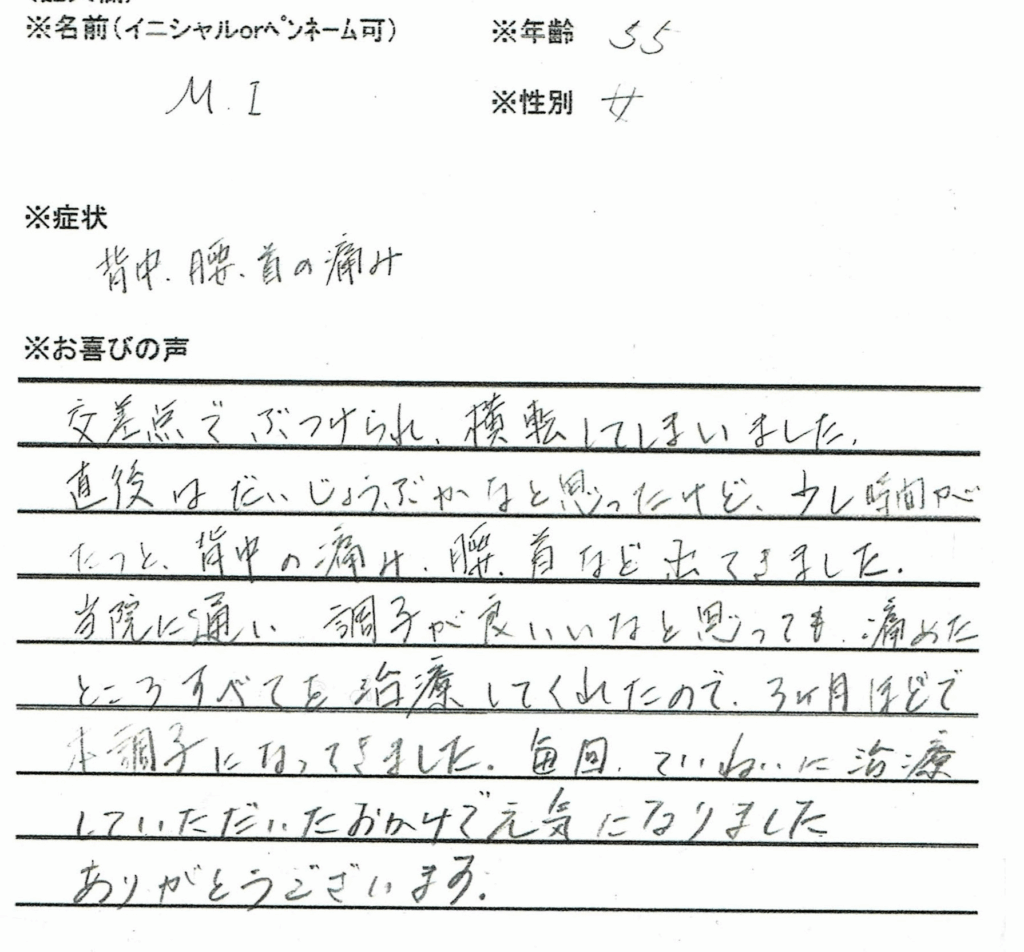 ※名前(イニシャルorペンネーム可) ※年齢 55
M.I ※性別 女
※症状
背中、腰、首の痛み
※お喜びの声
交差点でぶつけられ、横転してしまいました。
直後はだいじょうぶかなと思ったけど、少し時間が
たつと、背中の痛み、腰、首など出てきました。
当院に通い 調子が良いいなと思っても、痛めた
ところすべてを治療してくれたので、3ヶ月ほどで
本調子になってきました。毎回、ていねいに治療
していただいたおかげで元気になりました
ありがとうございます。